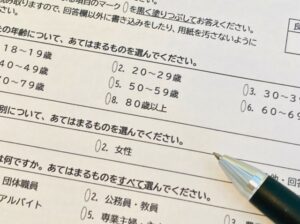 項目のマーク 0 を黒く塗りつぶしてお答えください。
み取りますので、回答欄以外に書き込みをしたり、用紙を汚さないように
の年齢について、あてはまるものを選んでください。
18~19歳 2. 20~29歳 3. 30~3
40~49歳 5. 50~59歳 6. 60~69
70~79歳 8. 80歳以上
別について、あてはまるものを選んでください。
2. 女性
他・回答
は何ですか。あてはまるものをすべて選んでください。
団体職員 2. 公務員・教員
アルバイト 5. 専業主婦・主